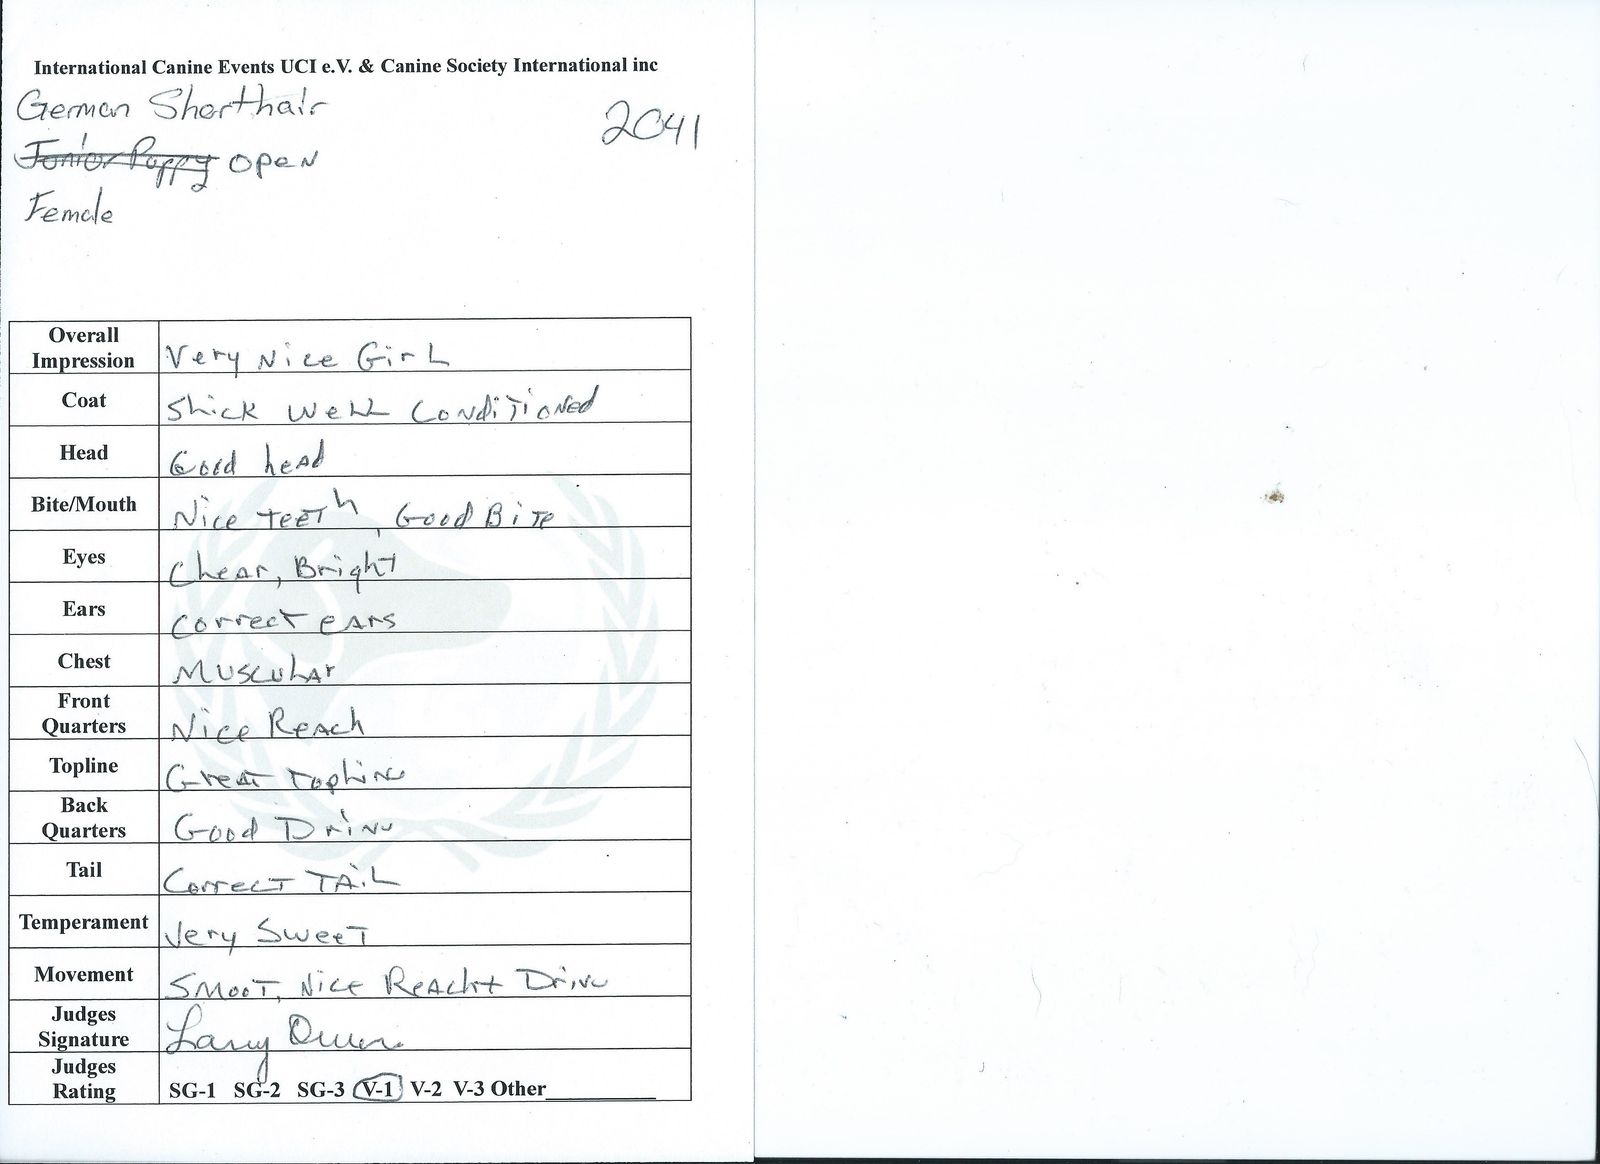 International Canine Events UCI e.V. & Canine Society International inc
German Shorthair
2041
Junior Puppy OPEN
Female
Overall Impression Very Nice Girl
Coat Slick Well Conditioned
Head Good head
Bite/Mouth Nice teeth, Good Bite
Eyes Clear, Bright
Ears Correct ears
Chest Muscular
Front Quarters Nice Reach
Topline Great topline
Back Quarters Good Drive
Tail Correct Tail
Temperament Very Sweet
Movement Smoot, Nice Reach + Drive
Judges Signature Larry Owen
Judges Rating SG-1 SG-2 SG-3 V-1 V-2 V-3 Other